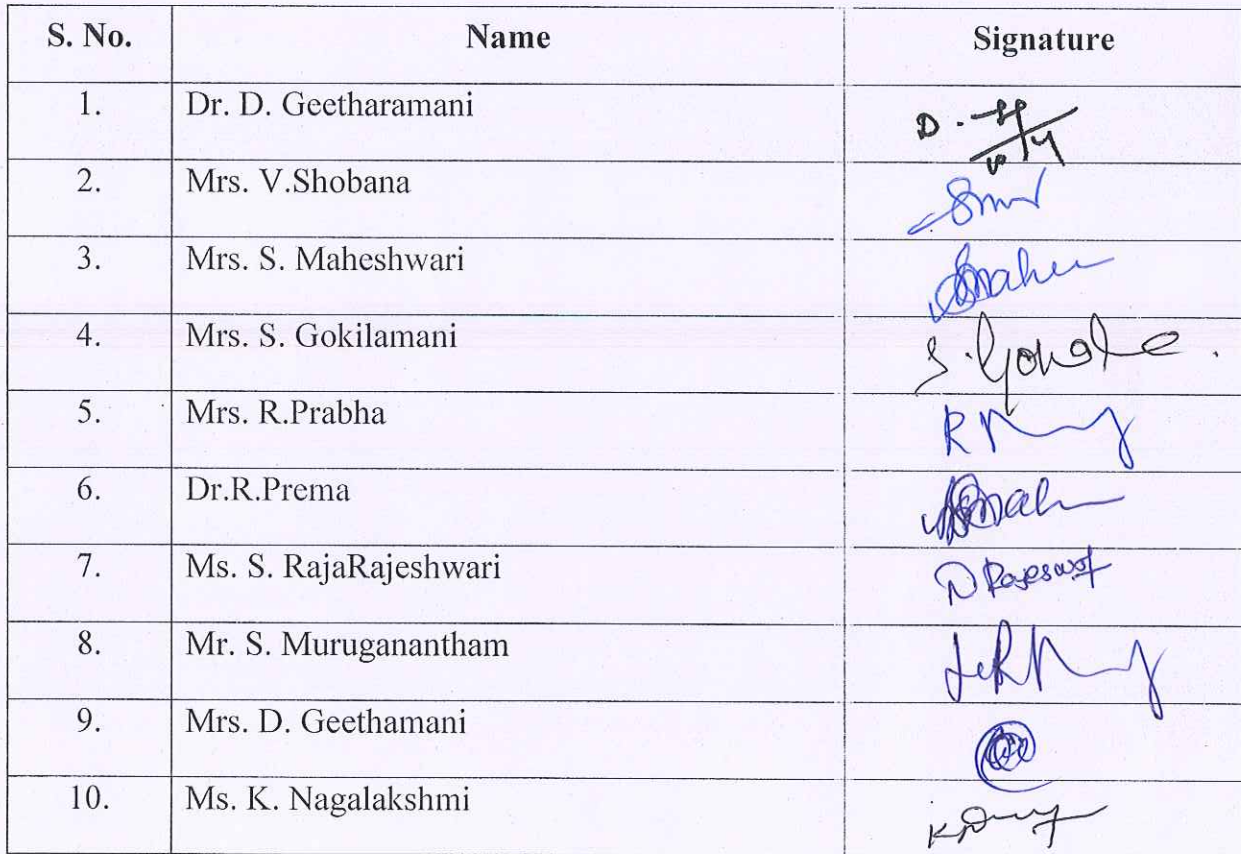 S. No. Name Signature
1. Dr. D. Geetharamani D.
2. Mrs. V.Shobana
3. Mrs. S. Maheshwari
4. Mrs. S. Gokilamani
5. Mrs. R.Prabha
6. Dr.R.Prema
7. Ms. S. RajaRajeshwari
8. Mr. S. Muruganantham
9. Mrs. D. Geethamani
10. Ms. K. Nagalakshmi